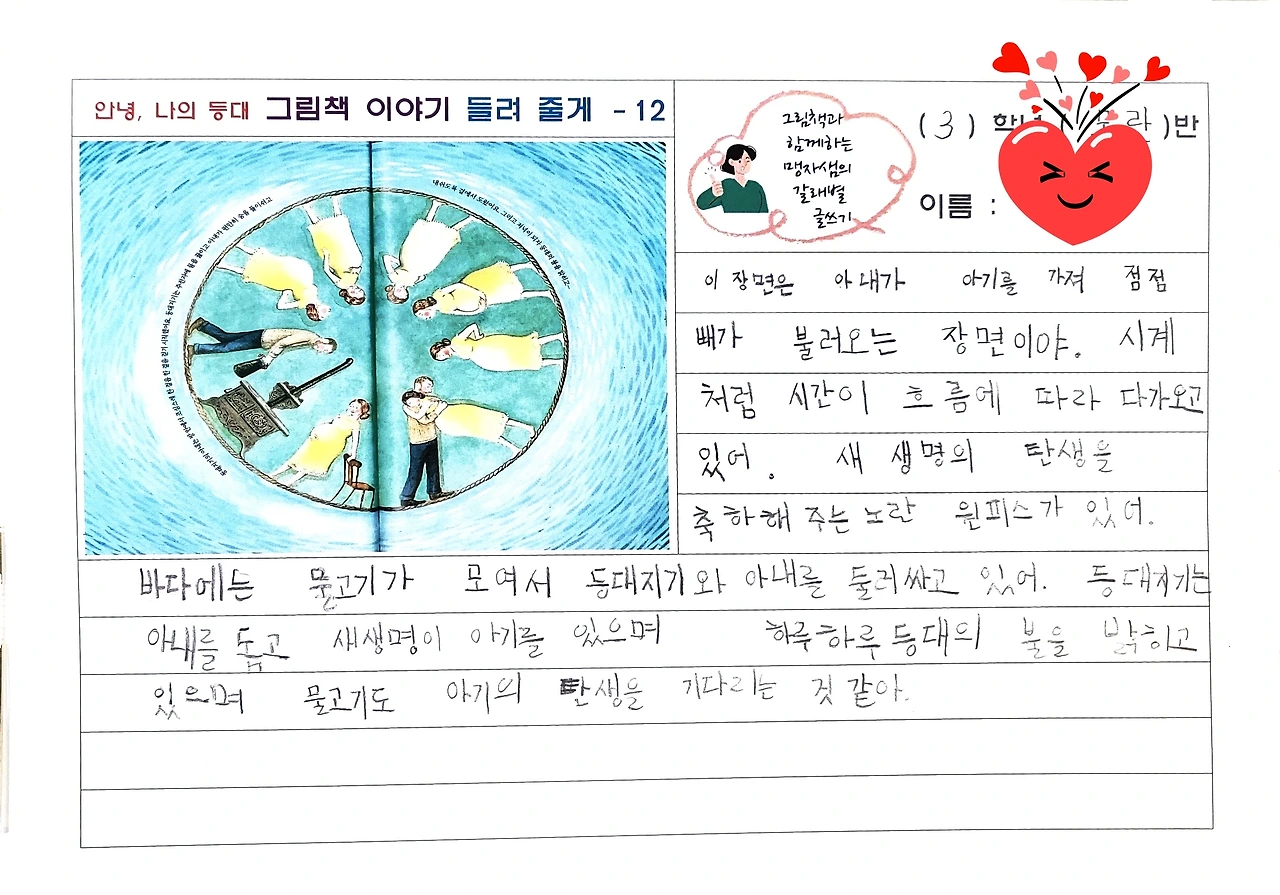 안녕, 나의 등대 그림책 이야기 들려 줄게 - 12
그림책과
함께하는
맹자샘의
갈래별
글쓰기
( 3 ) 학년 ( 라 )반
이름 :
이 장면은 아내가 아기를 가져 점점
빼가 불러오는 장면이야. 시계
처럼 시간이 흐름에 따라 다가오고
있어. 새 생명의 탄생을
축하해 주는 노란 원피스가 있어.
바다에는 물고기가 모여서 등대지기와 아내를 둘러싸고 있어. 등대지기는
아내를 돕고 새생명이 아기를 있으며 하루하루 등대의 불을 밝히고
있으며 물고기도 아기의 탄생을 기다리는 것 같아.